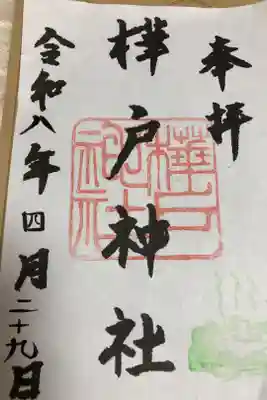 奉拝
樺戸神社
令和八年四月二十九日